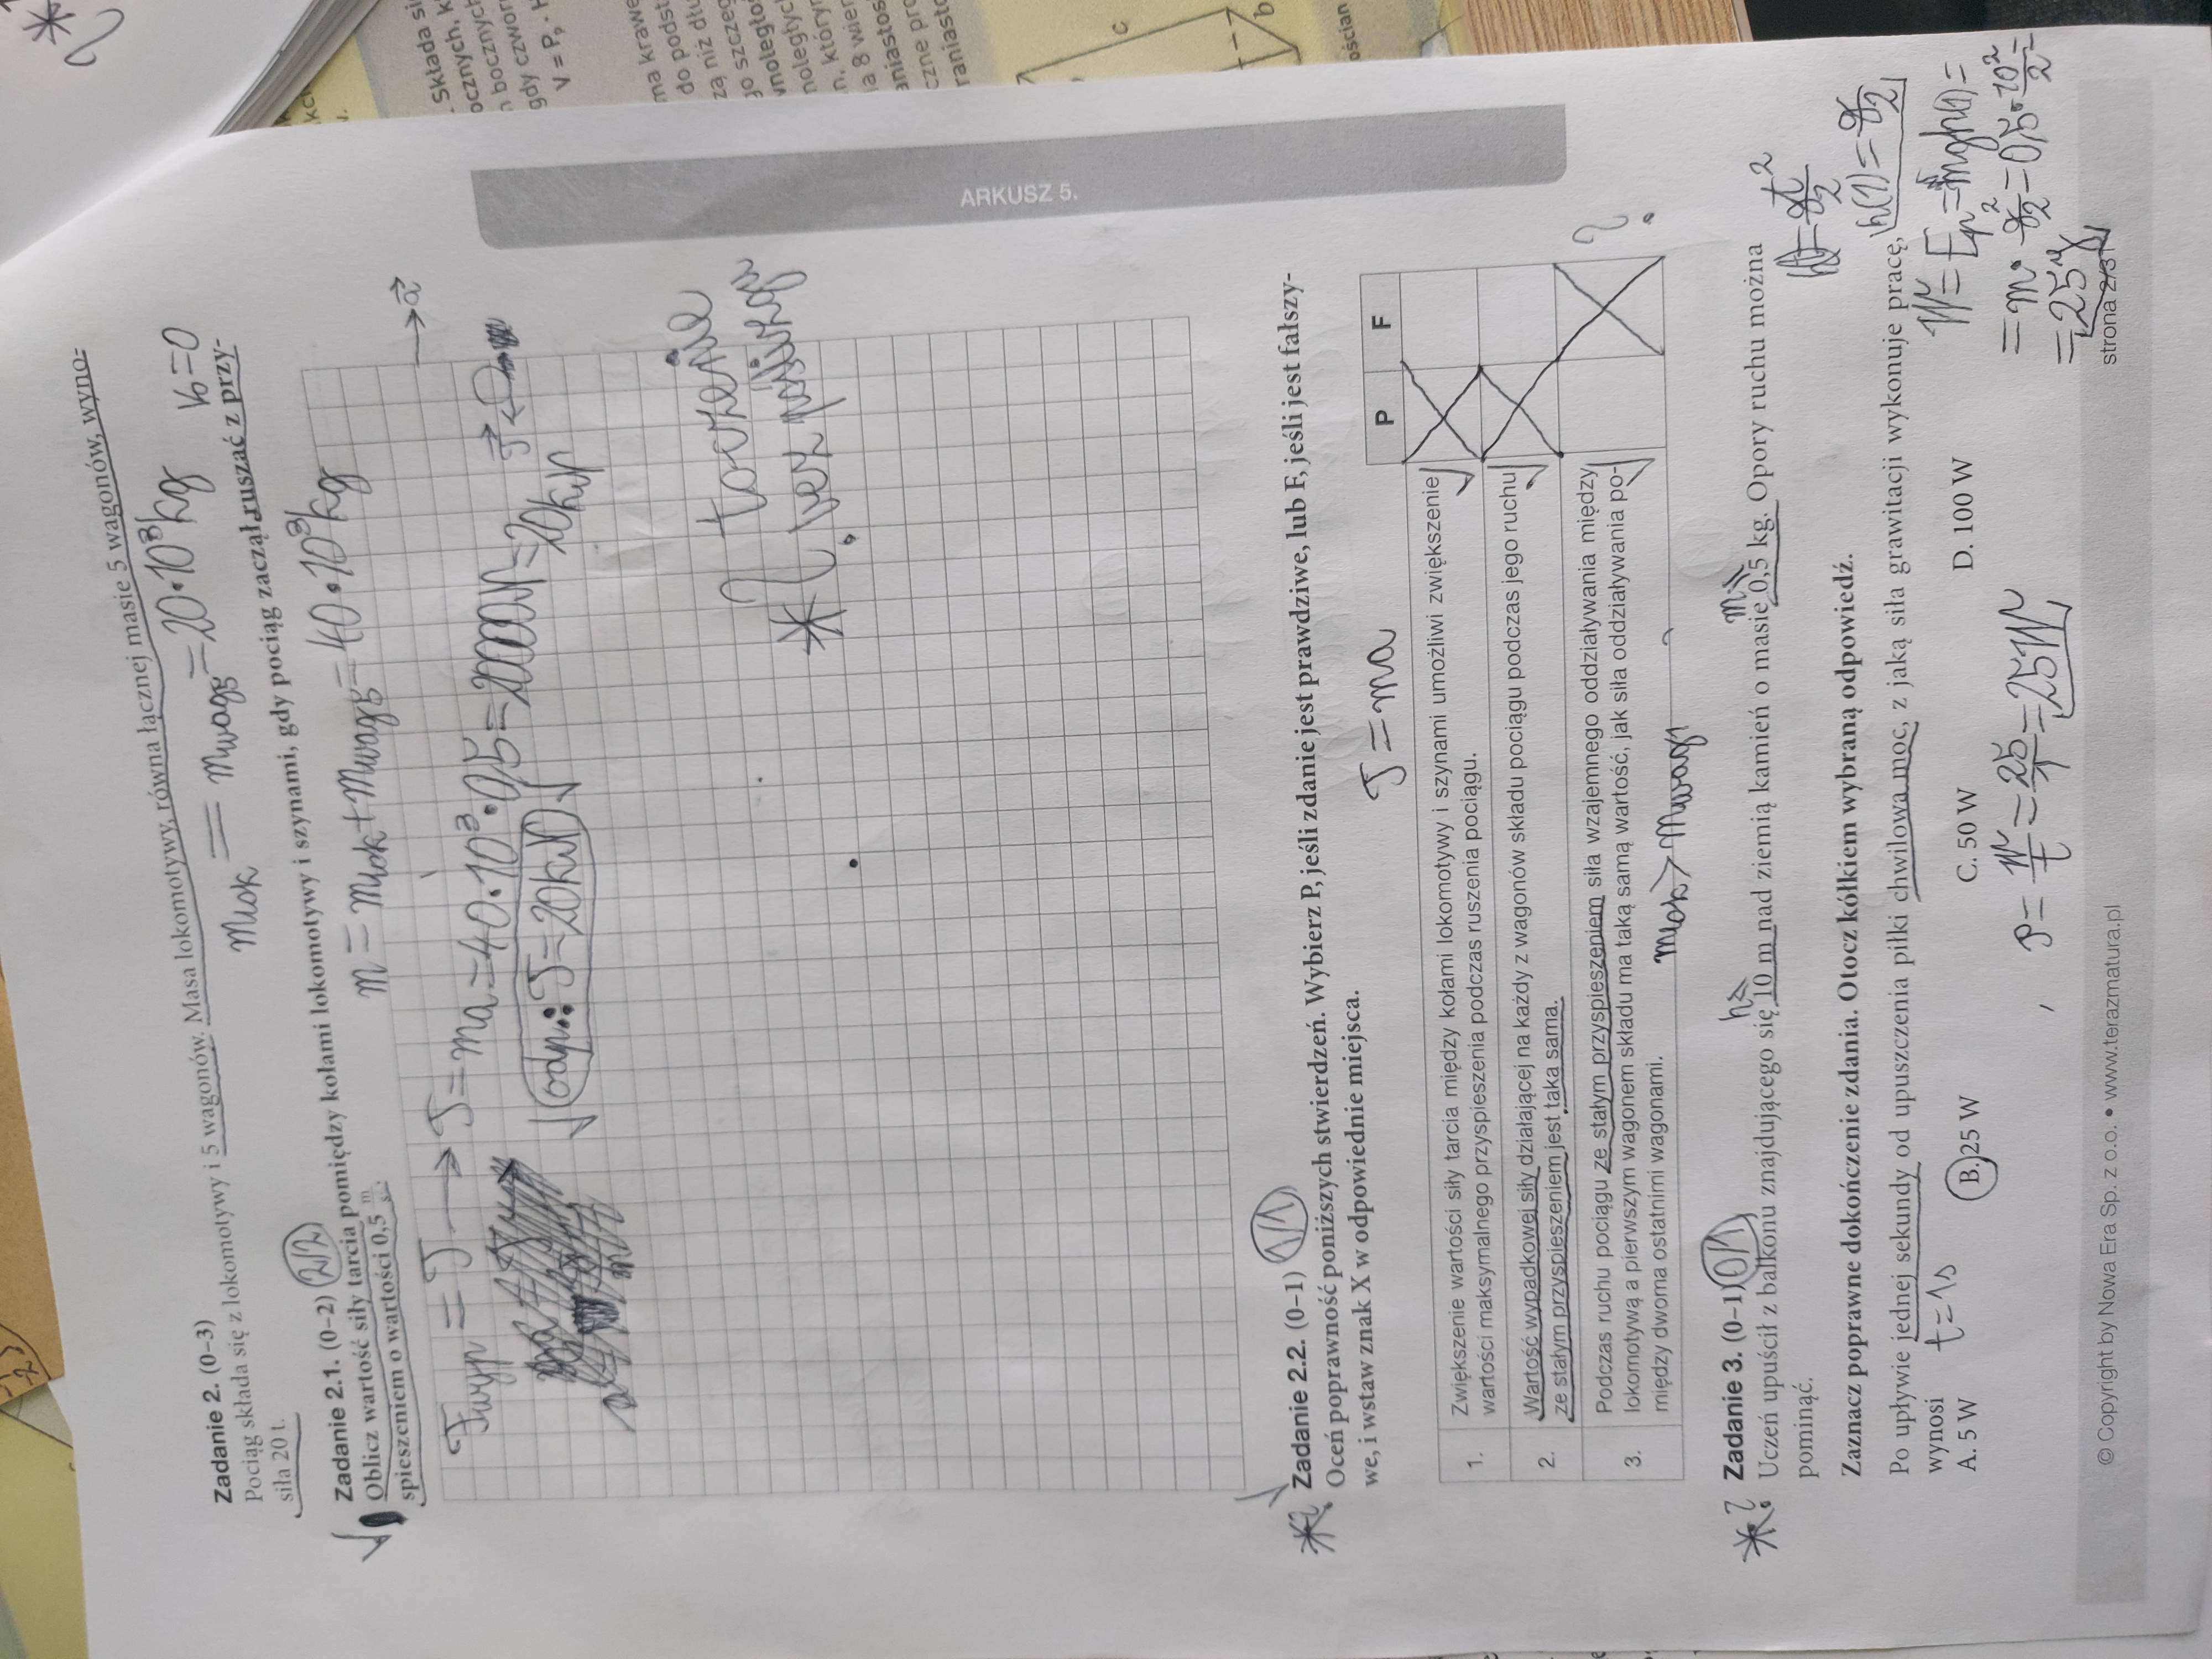 Zadanie 2. (0–3)
Pociąg składa się z lokomotywy i 5 wagonów. Masa lokomotywy, równa łącznej masie 5 wagonów, wyno-
siła 20 t.
mlok = mwag5 = 20·10³kg V₀=0
Zadanie 2.1. (0–2) 2/2
Oblicz wartość siły tarcia pomiędzy kołami lokomotywy i szynami, gdy pociąg zaczął ruszać z przy-
spieszeniem o wartości 0,5 m/s².
m = mlok + mwag5 = 40·10³kg
→a
Fwyp = T → T = ma = 40·10³·0,5 = 20000N = 20kN
odp.: T = 20kN
toczenie
bez poślizgów
ARKUSZ 5.
Zadanie 2.2. (0–1) 1/1
Oceń poprawność poniższych stwierdzeń. Wybierz P, jeśli zdanie jest prawdziwe, lub F, jeśli jest fałszy-
we, i wstaw znak X w odpowiednie miejsca.
T = ma
P F
1. Zwiększenie wartości siły tarcia między kołami lokomotywy i szynami umożliwi zwiększenie
wartości maksymalnego przyspieszenia podczas ruszenia pociągu.
2. Wartość wypadkowej siły działającej na każdy z wagonów składu pociągu podczas jego ruchu
ze stałym przyspieszeniem jest taka sama.
3. Podczas ruchu pociągu ze stałym przyspieszeniem siła wzajemnego oddziaływania między
lokomotywą a pierwszym wagonem składu ma taką samą wartość, jak siła oddziaływania po-
między dwoma ostatnimi wagonami.
?
mlok > mwag1
Zadanie 3. (0–1) 0/1
h= m=
Uczeń upuścił z balkonu znajdującego się 10 m nad ziemią kamień o masie 0,5 kg. Opory ruchu można
pominąć.
Zaznacz poprawne dokończenie zdania. Otocz kółkiem wybraną odpowiedź.
Po upływie jednej sekundy od upuszczenia piłki chwilowa moc, z jaką siła grawitacji wykonuje pracę,
wynosi
t = 1s
A. 5 W B. 25 W C. 50 W D. 100 W
h(1) = g/2
W = Ep = mgh(1) =
= m · g²/2 = 0,5 · 10²/2 =
= 25 J
P = W/t = 25/1 = 25W
© Copyright by Nowa Era Sp. z o.o. • www.terazmatura.pl
strona 2/31